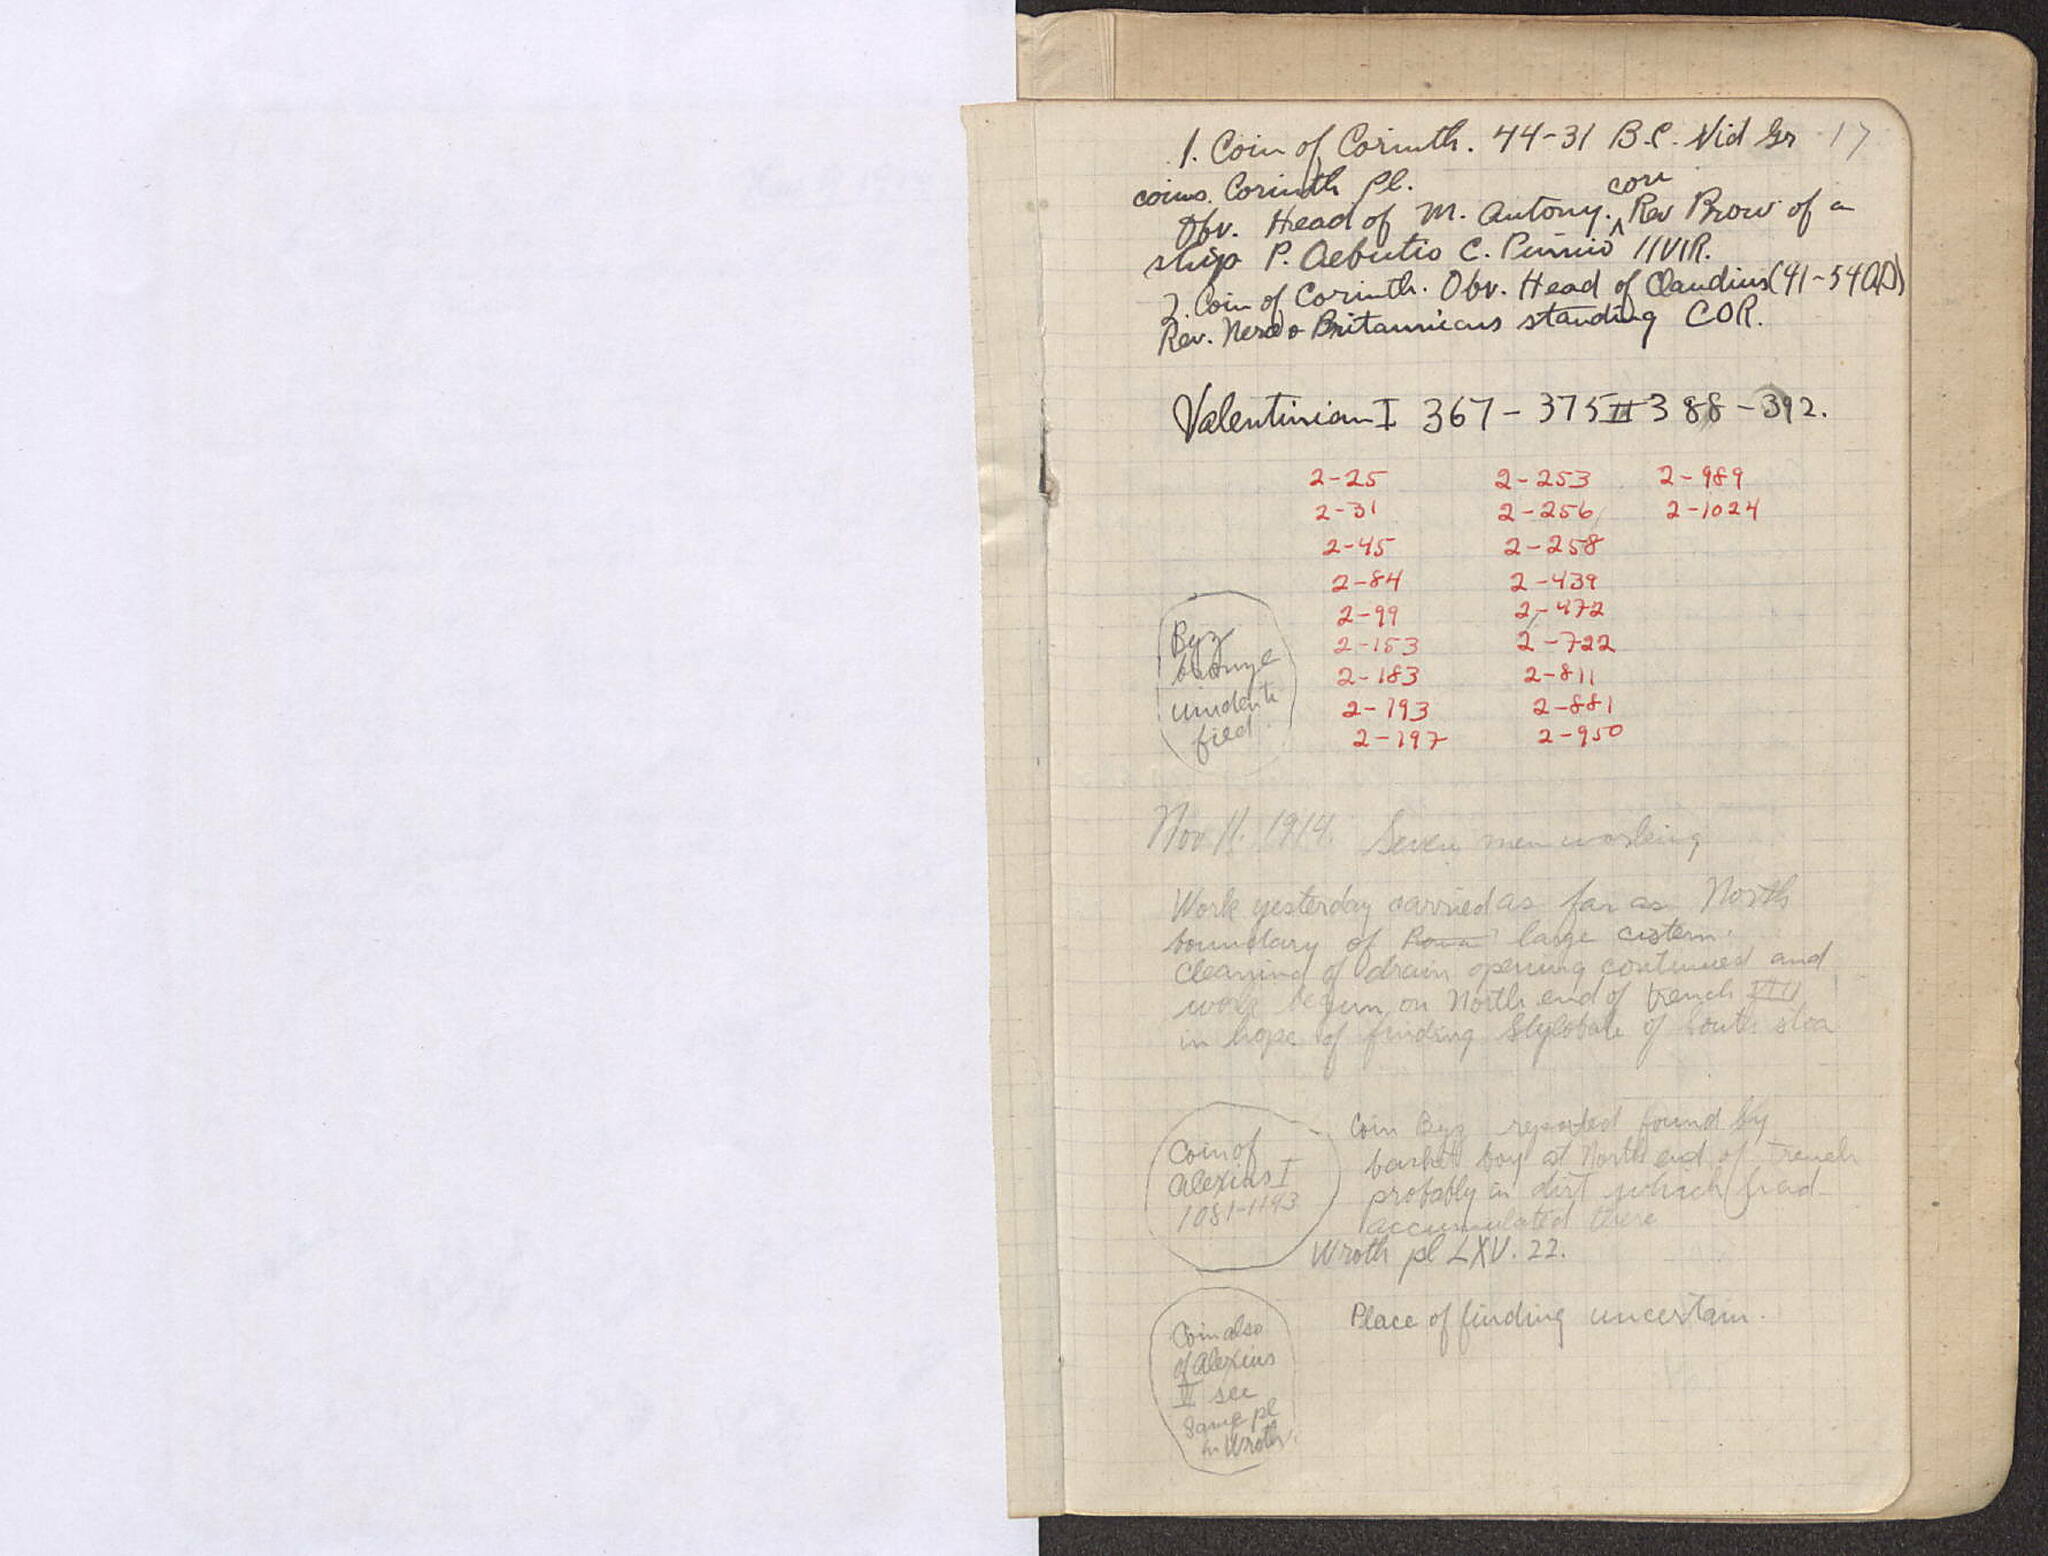 1. Coin of Corinth. 44-31 B.C. Vid Gr 17
coins. Corinth Pl.
corr
Obv. Head of M. Antony. ^ Rev Prow of a
ship P. Aebutio C. Pinnio IIVIR.
2. Coin of Corinth. Obv. Head of Claudius (41-54 AD)
Rev. Nero & Britannicus standing COR.
Valentinian I 367-375 II 388-392.
2-25 2-253 2-989
2-31 2-256 2-1024
2-45 2-258
2-84 2-439
2-99 2-472
2-153 2-722
2-183 2-811
2-193 2-881
2-197 2-950
Byz
bronze
unidenti
fied.
Nov 11. 1914. Seven men working
Work yesterday carried as far as North
boundary of large cistern.
Cleaning of drain opening continued and
work begun on North end of trench VIII
in hope of finding Stylobate of South stoa
Coin of
Alexius I
1081-1143
Coin Byz reported found by
basket boy at North end of Trench
probably in dirt which had
accumulated there
Wroth pl LXV. 22.
Coin also
of Alexius
II see
same pl
in Wroth.
Place of finding uncertain.